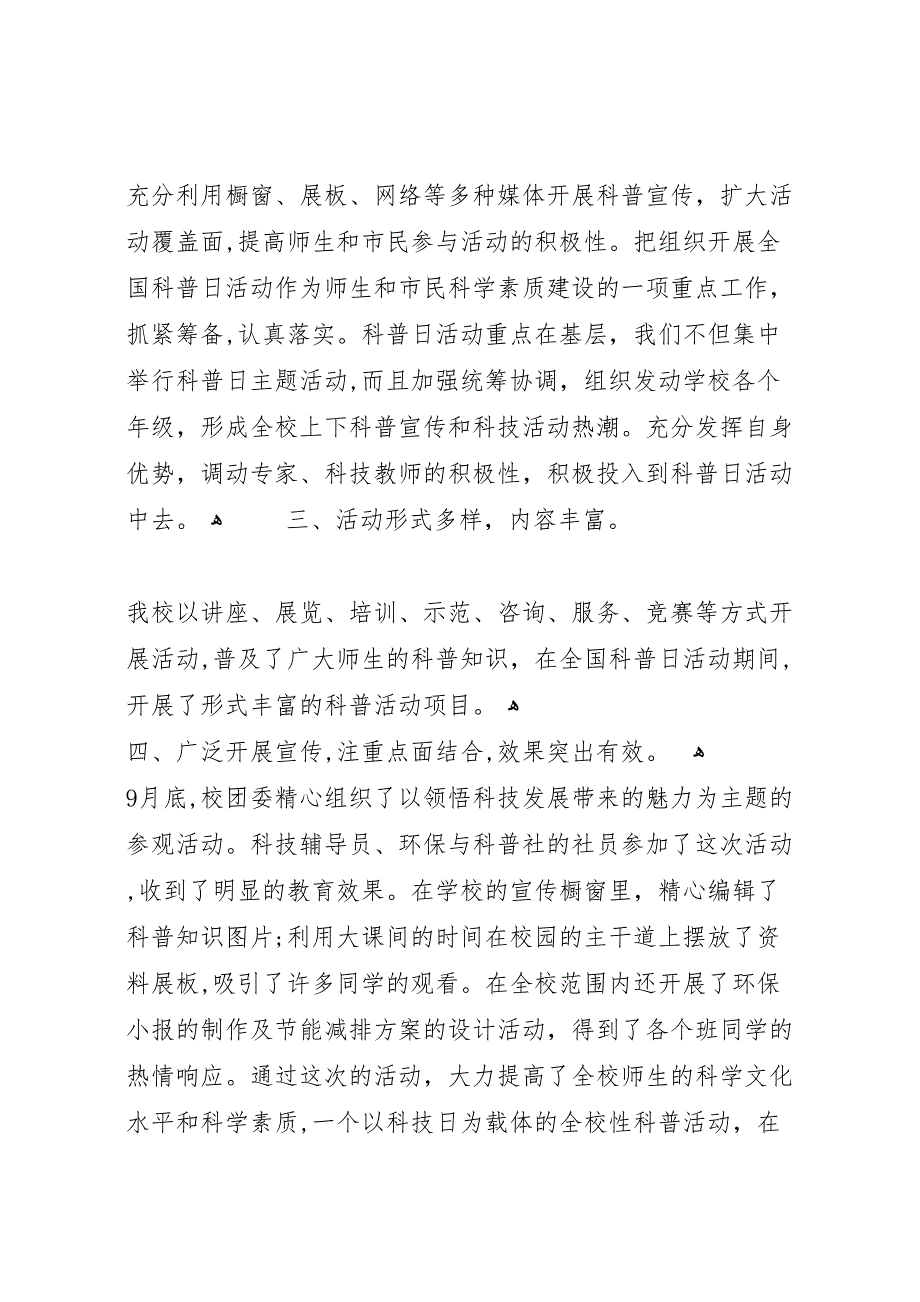 充分利用橱窗、展板、网络等多种媒体开展科普宣传，扩大活
动覆盖面,提高师生和市民参与活动的积极性。把组织开展全
国科普日活动作为师生和市民科学素质建设的一项重点工作，
抓紧筹备,认真落实。科普日活动重点在基层，我们不但集中
举行科普日主题活动,而且加强统筹协调，组织发动学校各个
年级，形成全校上下科普宣传和科技活动热潮。充分发挥自身
优势，调动专家、科技教师的积极性，积极投入到科普日活动
中去。 ﻫ 三、活动形式多样，内容丰富。
我校以讲座、展览、培训、示范、咨询、服务、竞赛等方式开
展活动,普及了广大师生的科普知识，在全国科普日活动期间,
开展了形式丰富的科普活动项目。 ﻫ
四、广泛开展宣传,注重点面结合,效果突出有效。 ﻫ
9月底,校团委精心组织了以领悟科技发展带来的魅力为主题的
参观活动。科技辅导员、环保与科普社的社员参加了这次活动
,收到了明显的教育效果。在学校的宣传橱窗里，精心编辑了
科普知识图片;利用大课间的时间在校园的主干道上摆放了资
料展板,吸引了许多同学的观看。在全校范围内还开展了环保
小报的制作及节能减排方案的设计活动，得到了各个班同学的
热情响应。通过这次的活动，大力提高了全校师生的科学文化
水平和科学素质,一个以科技日为载体的全校性科普活动，在